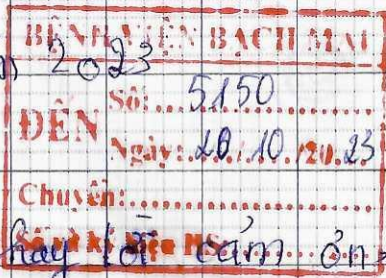 BỆNH VIỆN BẠCH MAI
2023
Số: 5150
ĐẾN
Ngày: 20/10/2023
Chuyển:
hay lời cảm ơn